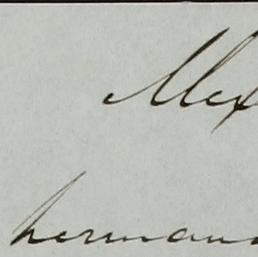 Mex
herman